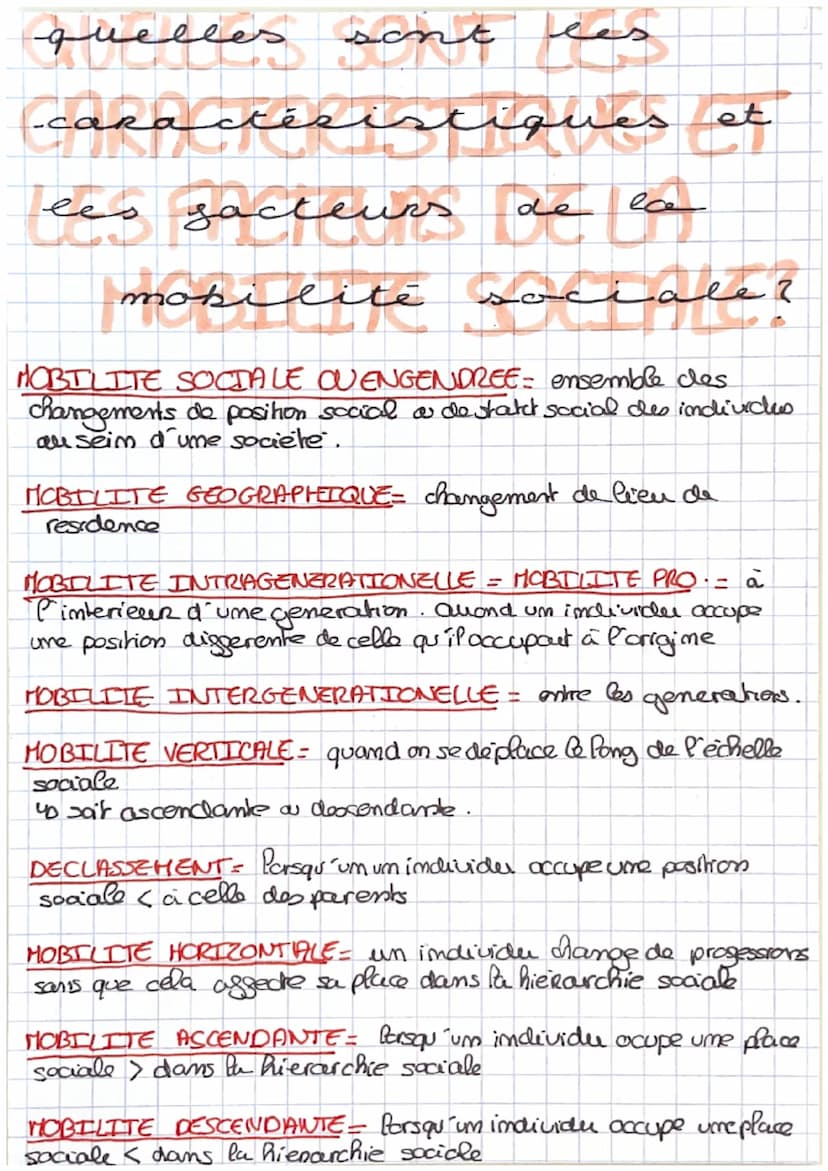 quelles sont les
caractéristiques et
les facteurs de la
mobilité sociale?
MOBILITE SOCIALE OU ENGENDREE = ensemble des
changements de position social ou de statut social des individus
au sein d'une société.
MOBILITE GEOGRAPHIQUE = changement de lieu de
residence
MOBILITE INTRAGENERATIONELLE = MOBILITE PRO. = à
l'interieur d'une generation. Quand un individu occupe
une position differente de celle qu'il occupait à l'origine
MOBILITE INTERGENERATIONELLE = entre les generations.
MOBILITE VERTICALE = quand on se déplace le long de l'échelle
sociale
↳ soit ascendante ou descendante.
DECLASSEMENT = lorsqu'un un individu occupe une position
sociale < à celle des parents
MOBILITE HORIZONTALE = un individu change de professions
sans que cela affecte sa place dans la hiérarchie sociale
MOBILITE ASCENDANTE = lorsqu'un individu ocupe une place
sociale > dans la hierarchie sociale
MOBILITE DESCENDANTE = lorsqu'un individu occupe une place
sociale < dans la hierarchie sociale